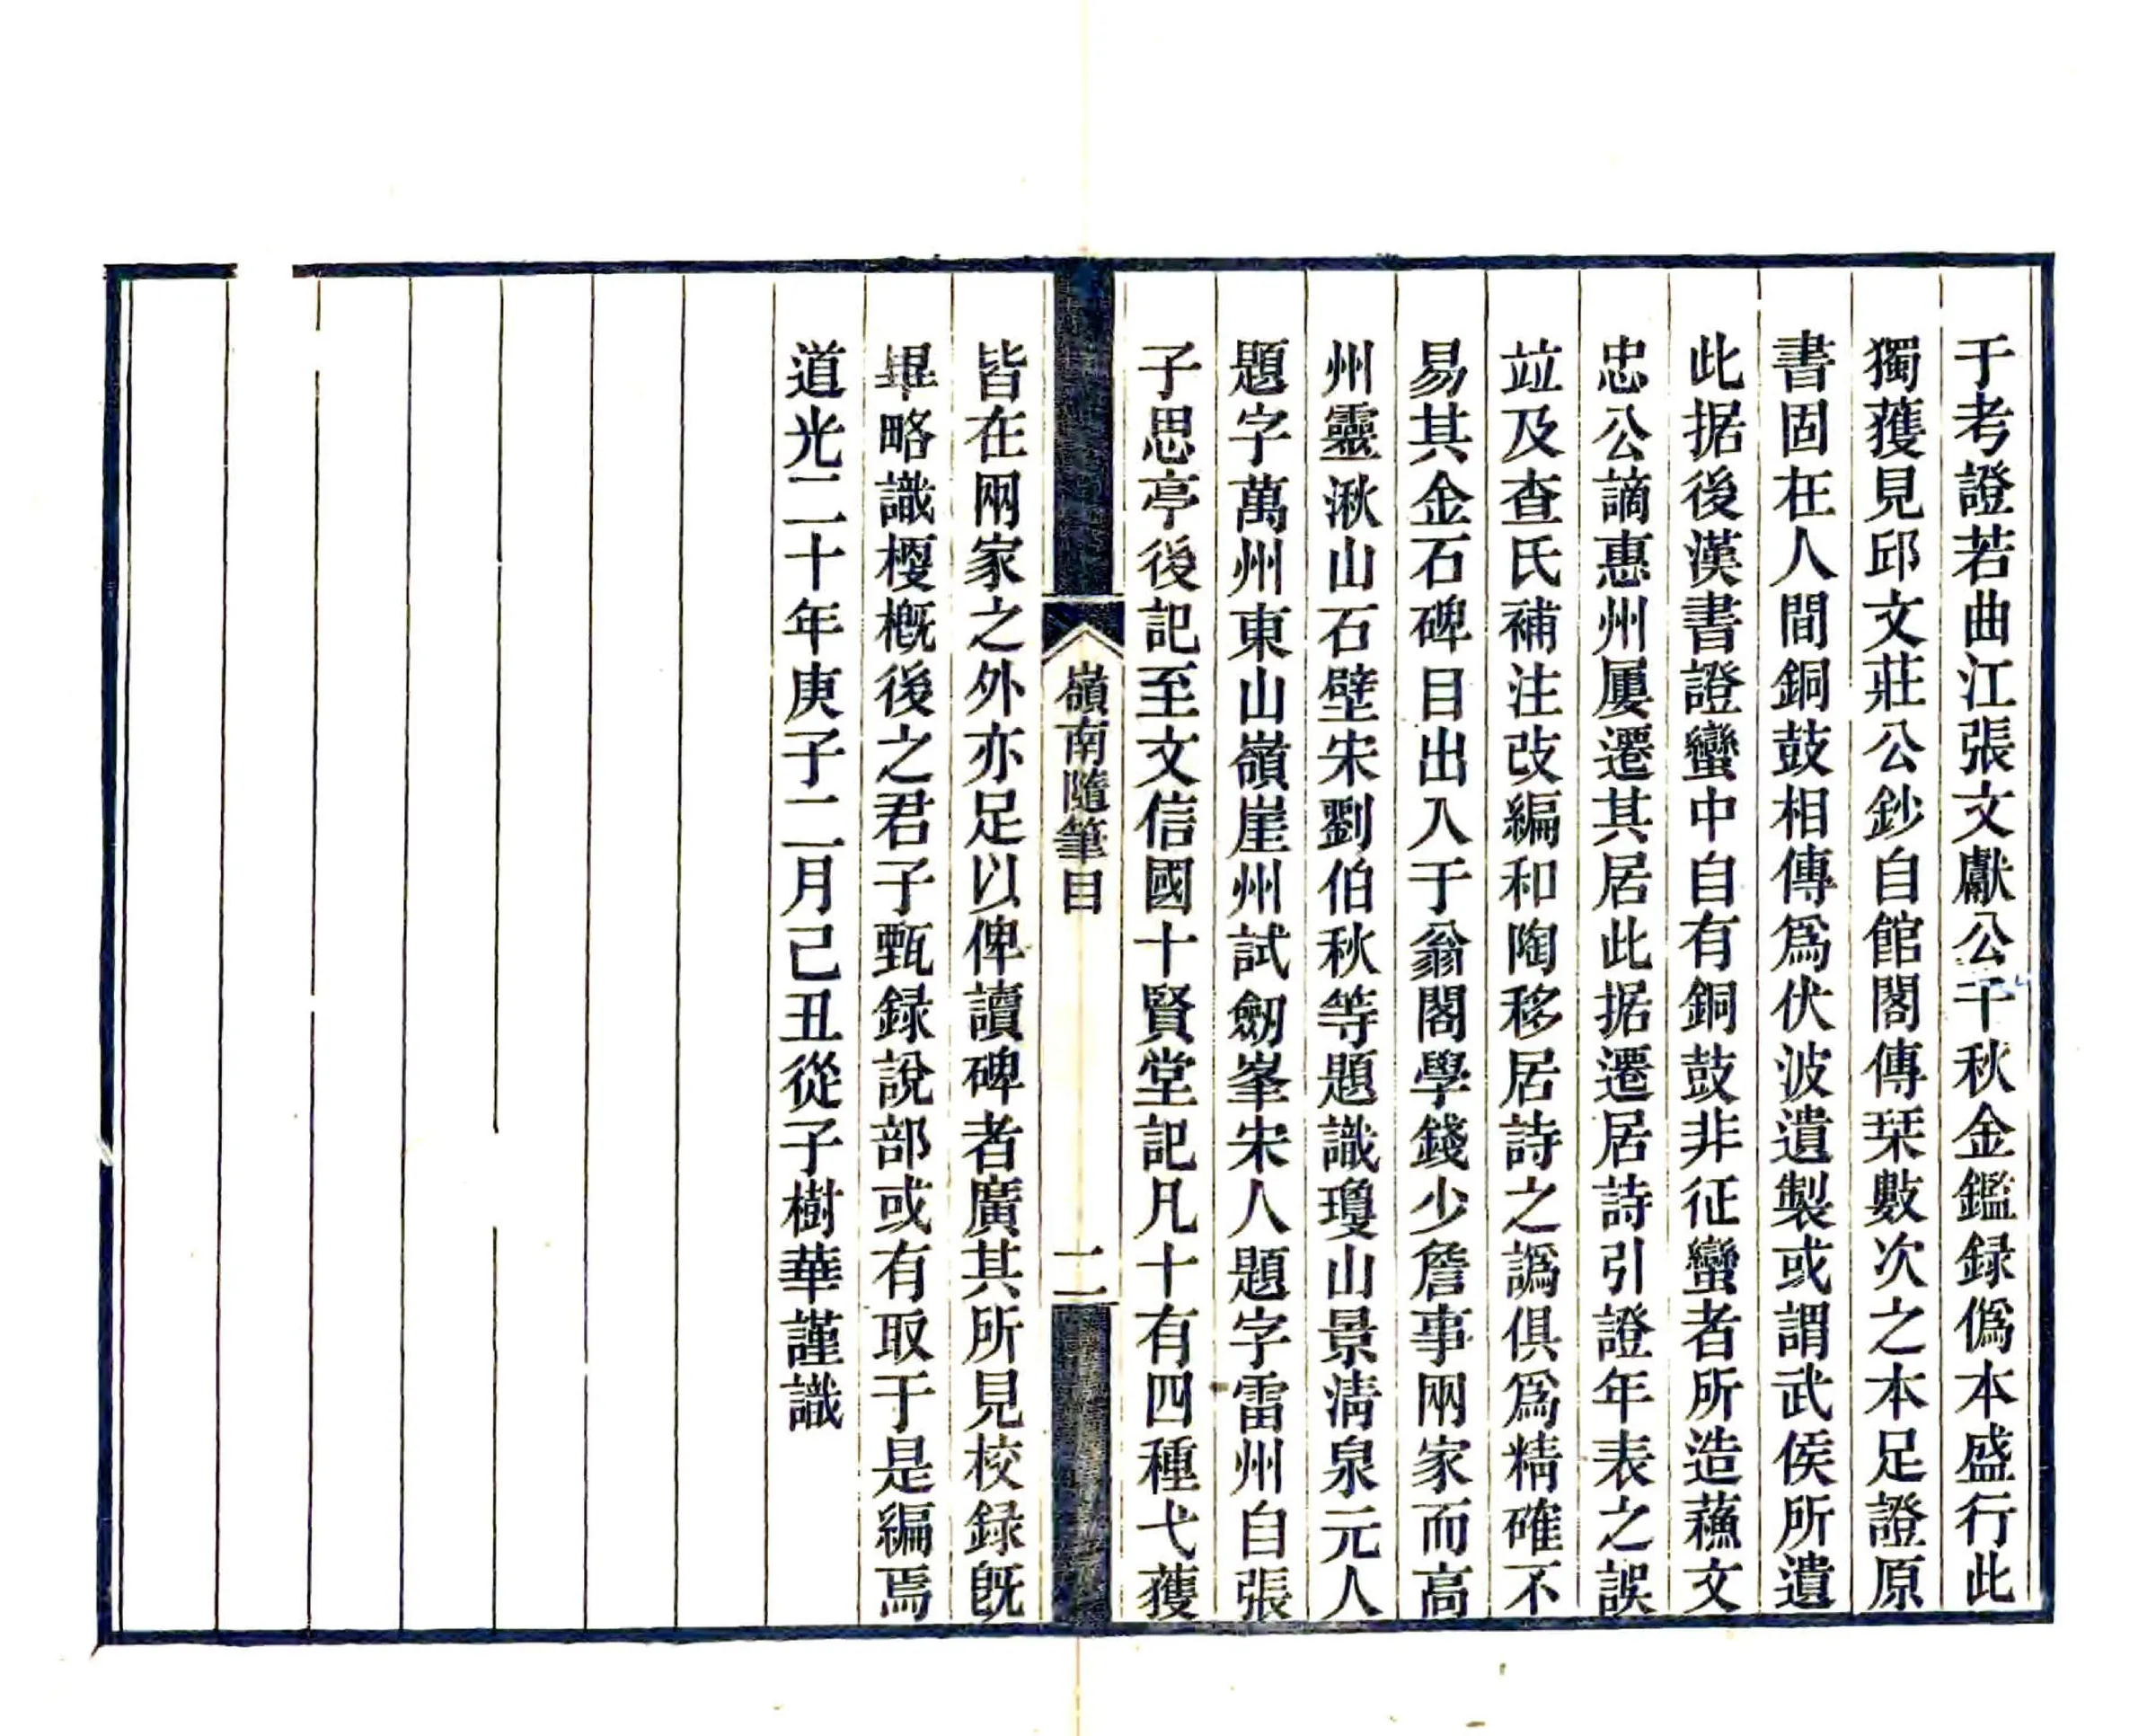 于考證若曲江張文獻公千秋金鑑録僞本盛行此
獨獲見邱文莊公鈔自館閣傳栞數次之本足證原
書固在人間銅鼓相傳爲伏波遺製或謂武侯所遺
此据後漢書證蠻中自有銅鼓非征蠻者所造蘓文
忠公謫惠州屢遷其居此据遷居詩引證年表之誤
竝及查氏補注改編和陶移居詩之譌俱爲精確不
易其金石碑目出入于翁閣學錢少詹事兩家而高
州靈湫山石壁宋劉伯秋等題識瓊山景淸泉元人
題字萬州東山嶺崖州試劒峯宋人題字雷州自張
子思亭後記至文信國十賢堂記凡十有四種弋獲
嶺南隨筆目
二
皆在兩家之外亦足以俾讀碑者廣其所見校録旣
畢略識梗槪後之君子甄録說部或有取于是編焉
道光二十年庚子二月己丑從子樹華謹識